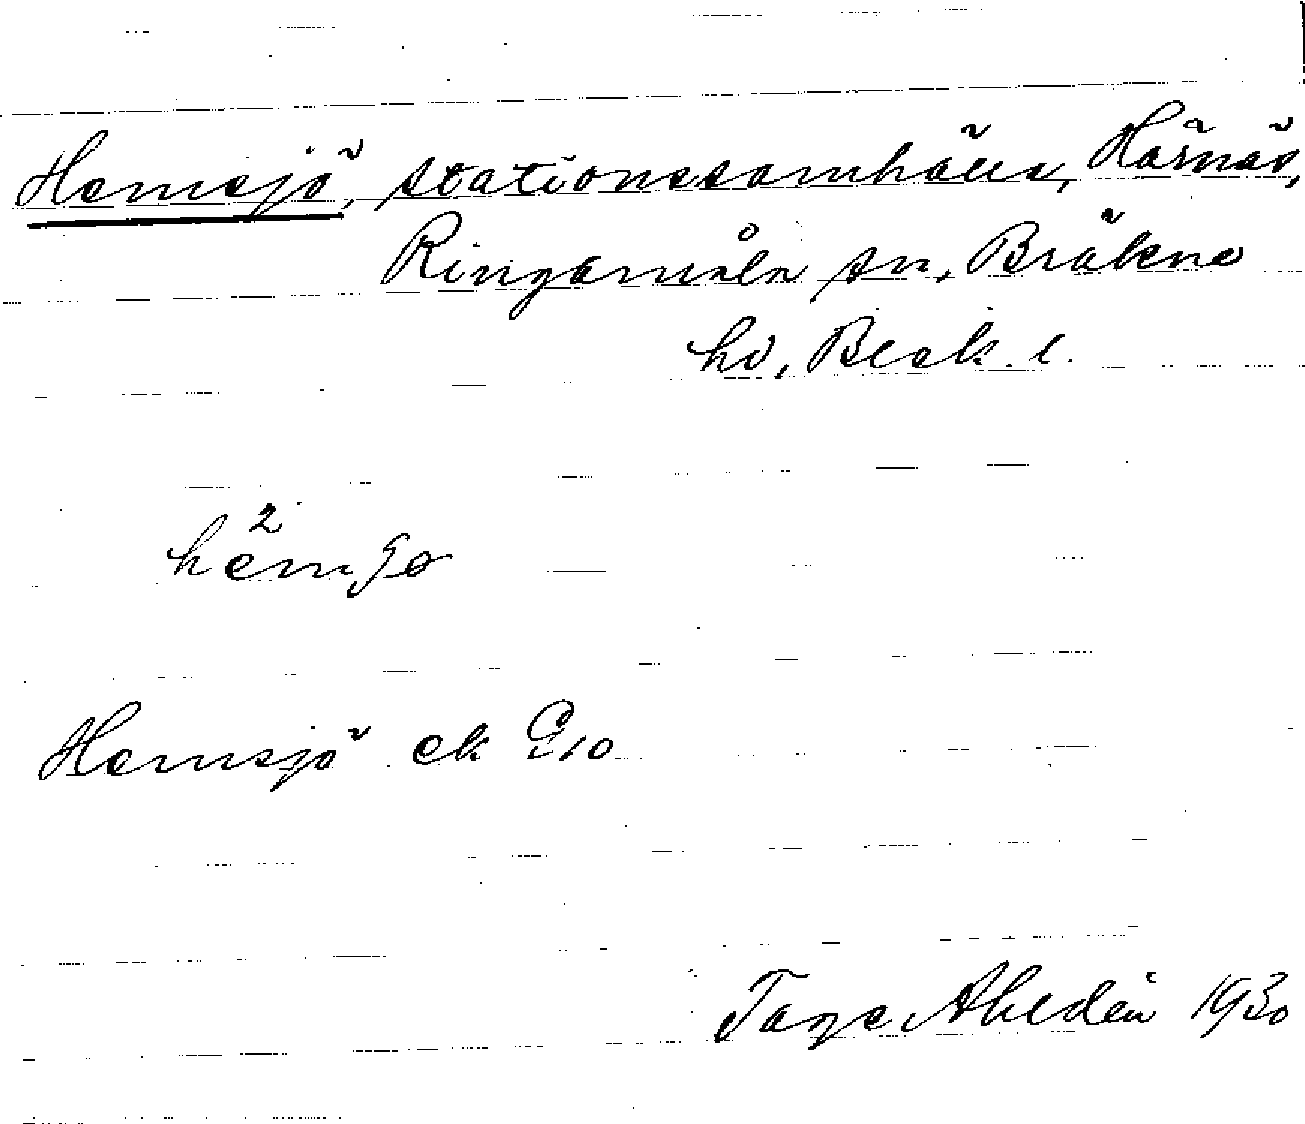 Hemsjö, stationssamhälle, Härnäs,
Ringamåla sn, Bräkne
hd, Blek. l.
Hemsjö ek G10
Tage Ahldén 1930